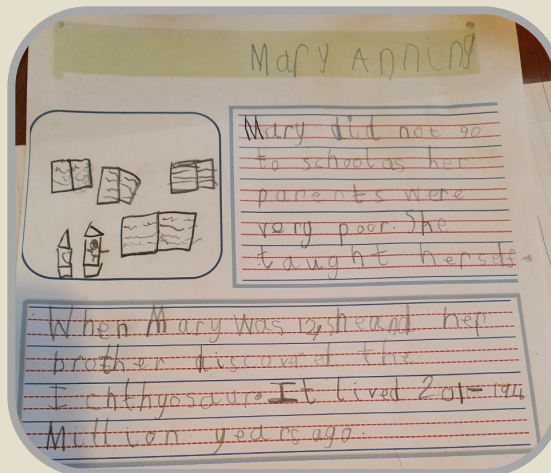 Mary Anning
Mary did not go
to school as her
parents were
very poor. She
taught herself.
When Mary was 12, she and her
brother discovred the
Ichthyosaur. It lived 201-194
Million years ago.